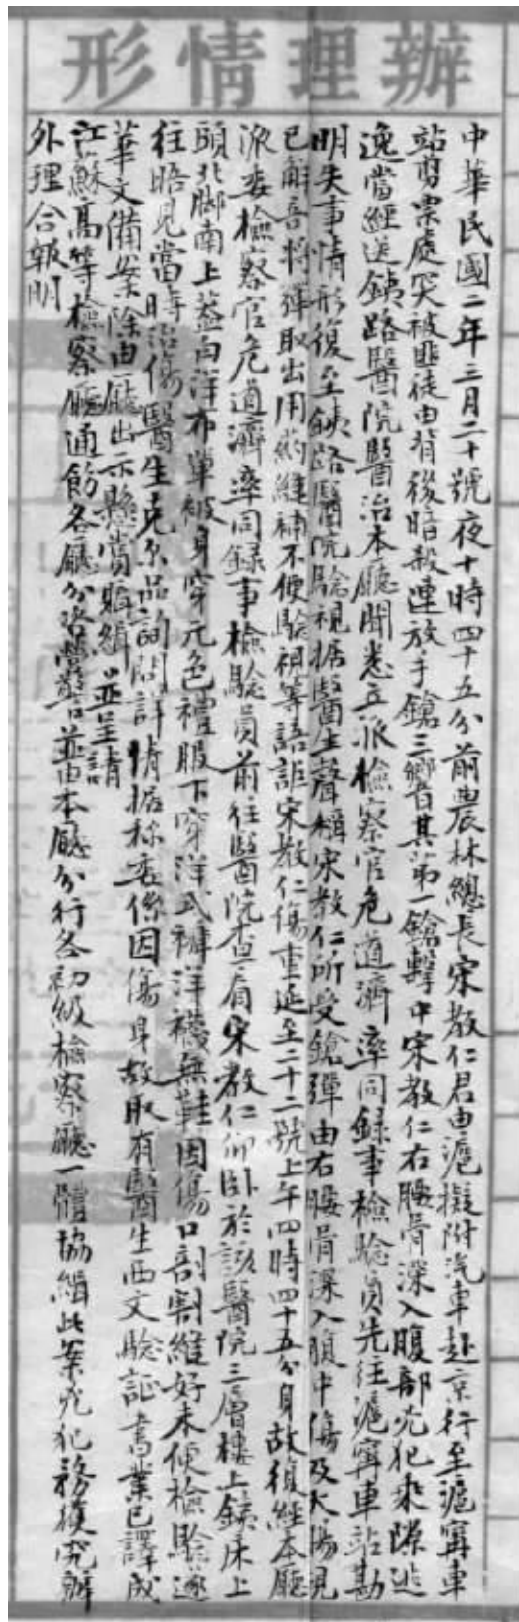 辦理情形
中華民國二年三月二十號夜十時四十五分前農林總長宋教仁君由滬擬附汽車赴京行至滬甯車
站剪票處突被匪徒由背後暗殺連放手鎗三響其第一鎗擊中宋教仁右腰骨深入腹部兇犯乘隙逃
逸當經送鉄路醫院醫治本廳聞悉立派檢察官危道濟率同錄事檢驗員先往滬甯車站勘
明失事情形復至鉄路醫院驗視據醫生聲稱宋教仁所受鎗彈由右腰骨深入腹中傷及大腸見
已解剖將彈取出用药縫補不便驗視等語詎宋教仁傷重延至二十二號上午四時四十五分身故復經本廳
派委檢察官危道濟率同錄事檢驗員前往醫院查看宋教仁仰臥於該醫院三層樓上鉄床上
頭北脚南上蓋白洋布單被身穿元色禮服下穿洋式褲洋襪無鞋因傷口剖割維好未便檢驗遂
往晤見當時治傷醫生克尒品詢問詳情据称委係因傷身故取有醫生西文驗証書業已譯成
華文備案除由廳出示懸賞購緝並呈請
江蘇高等檢察廳通飭各廳分咨營警並由本廳分行各初級檢察廳一體協緝此案兇犯務獲究辦
外理合報明